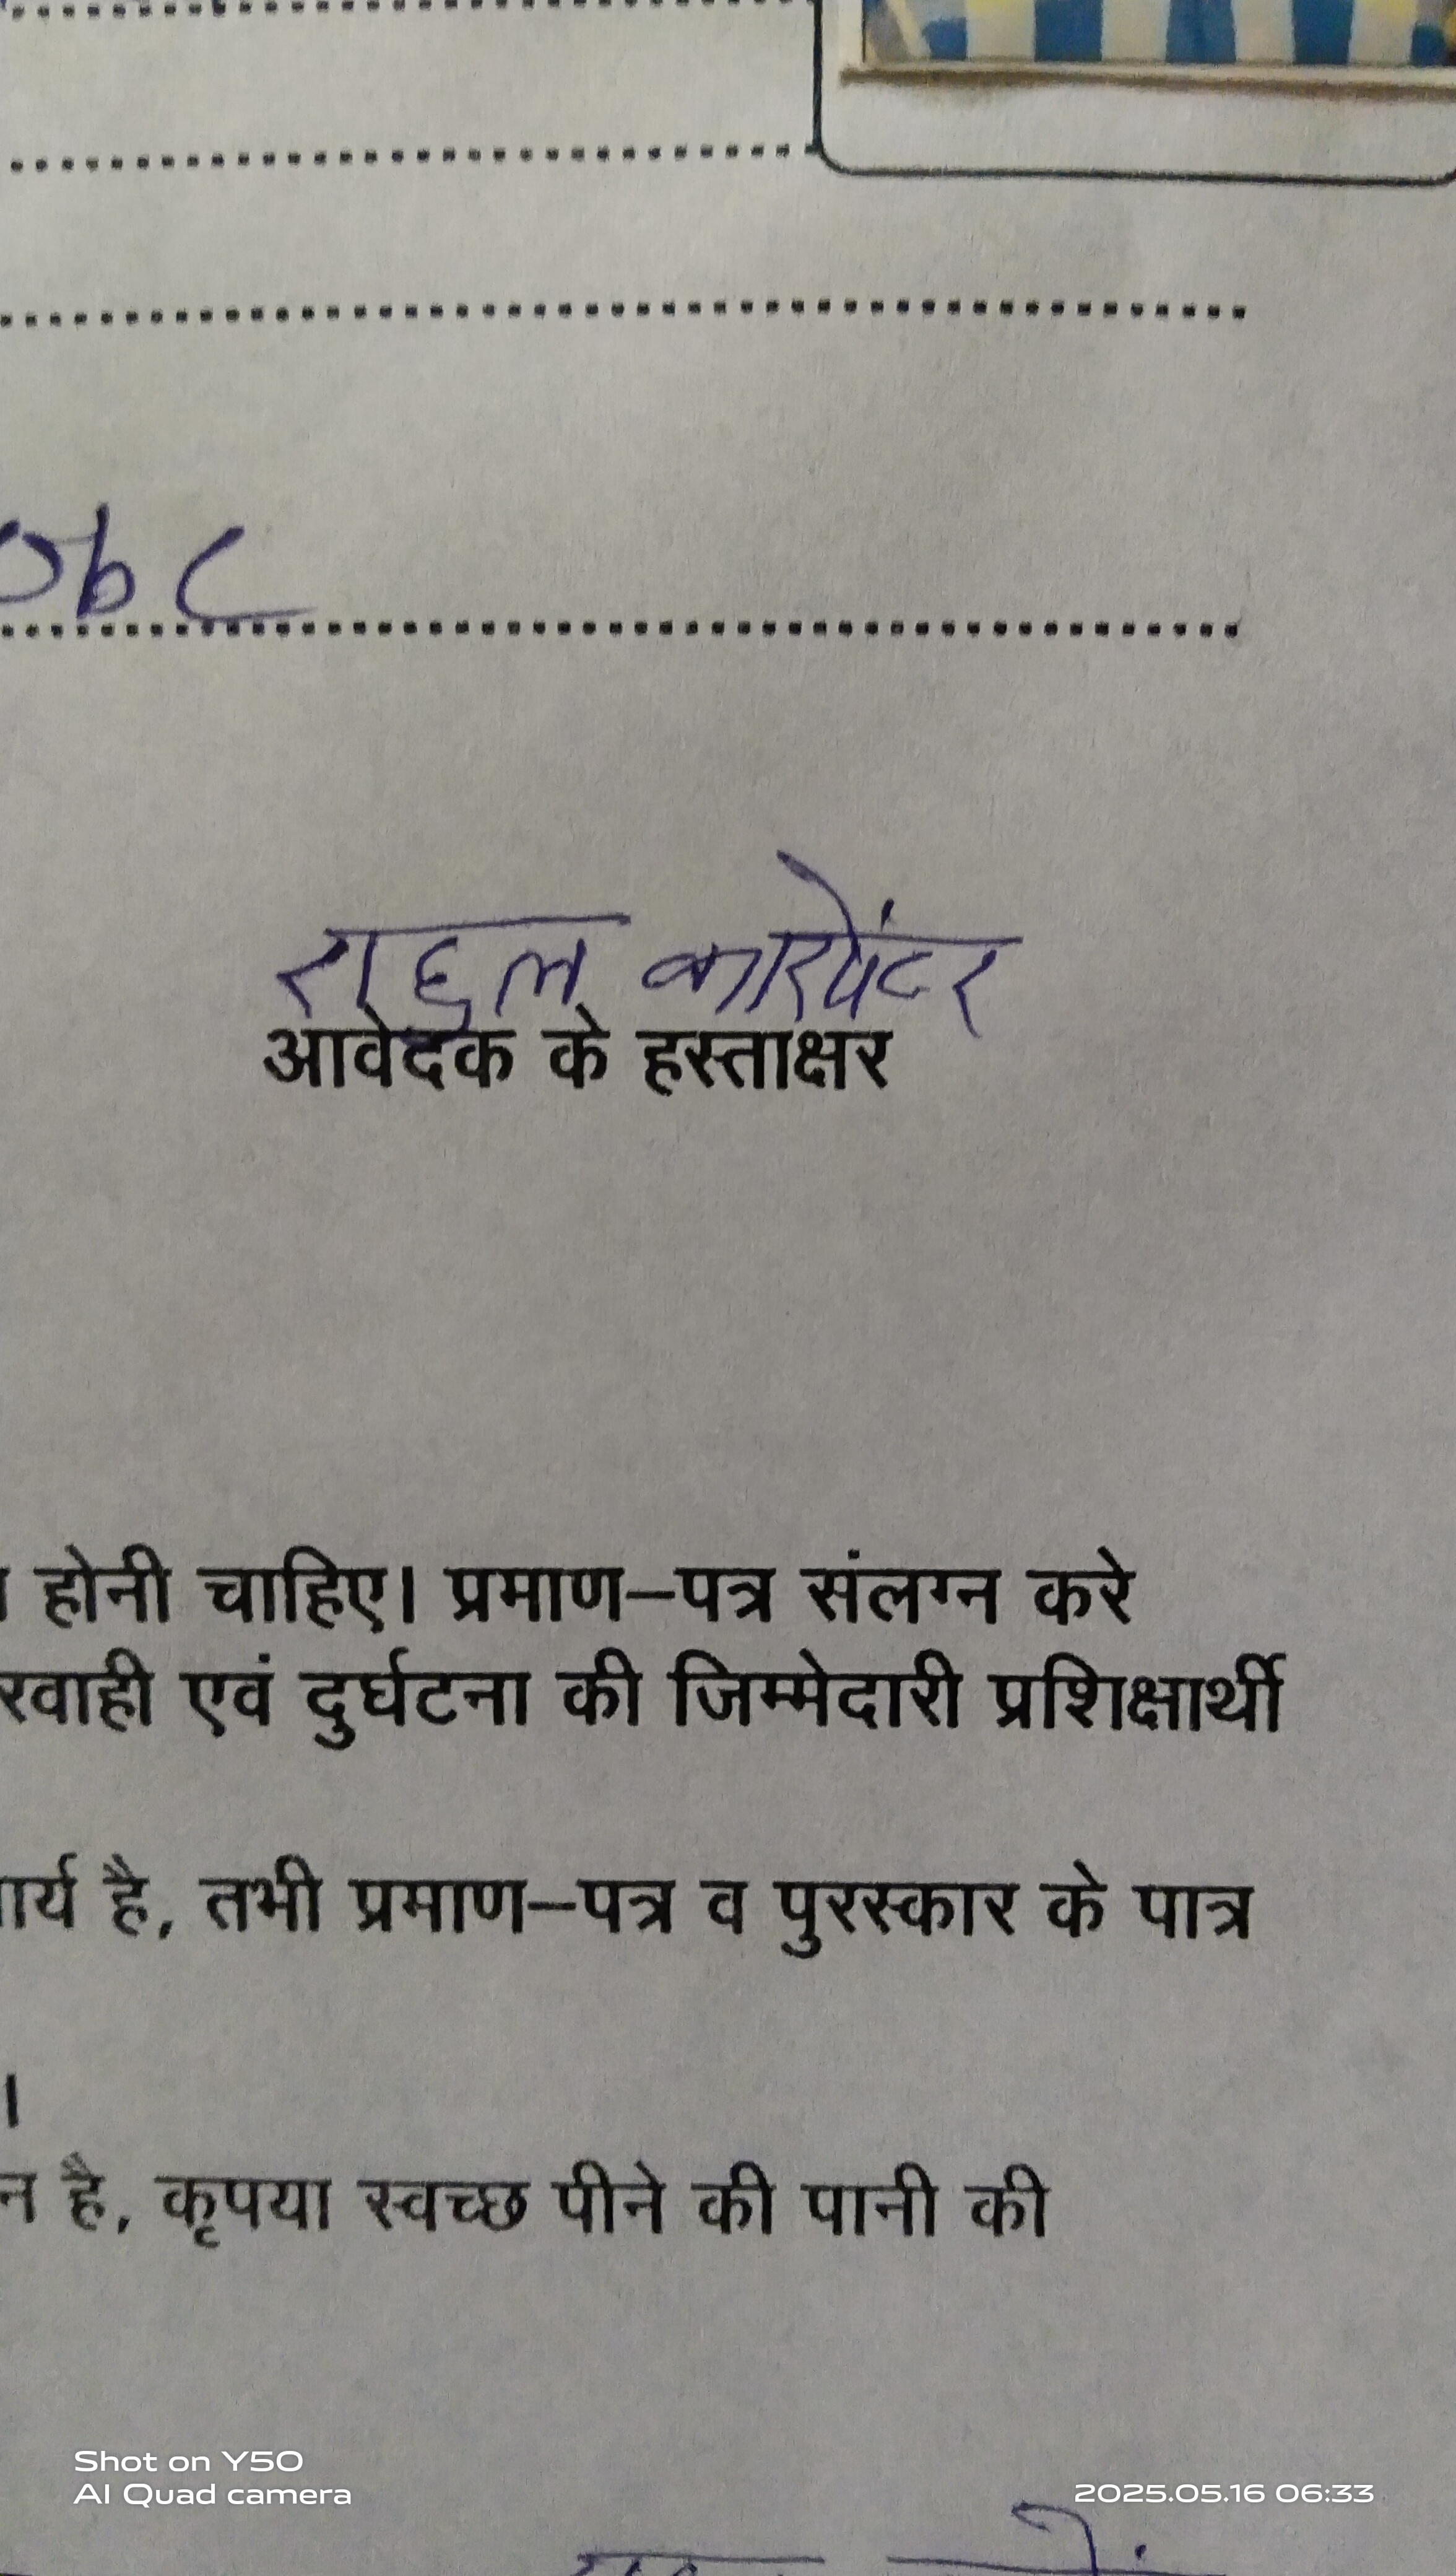 Obc
राहुल कारपेंटर
आवेदक के हस्ताक्षर
होनी चाहिए। प्रमाण–पत्र संलग्न करे
रवाही एवं दुर्घटना की जिम्मेदारी प्रशिक्षार्थी
ार्य है, तभी प्रमाण–पत्र व पुरस्कार के पात्र
।
न है, कृपया स्वच्छ पीने की पानी की
Shot on Y50
AI Quad camera
2025.05.16 06:33